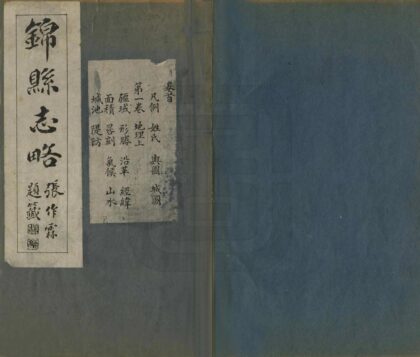 錦縣志略
張作霖題籤
卷首
凡例 姓氏 輿圖 城圖
第一卷 地理上
疆域 形勝 沿革 經緯
面積 晷刻 氣候 山水
城池 隄防